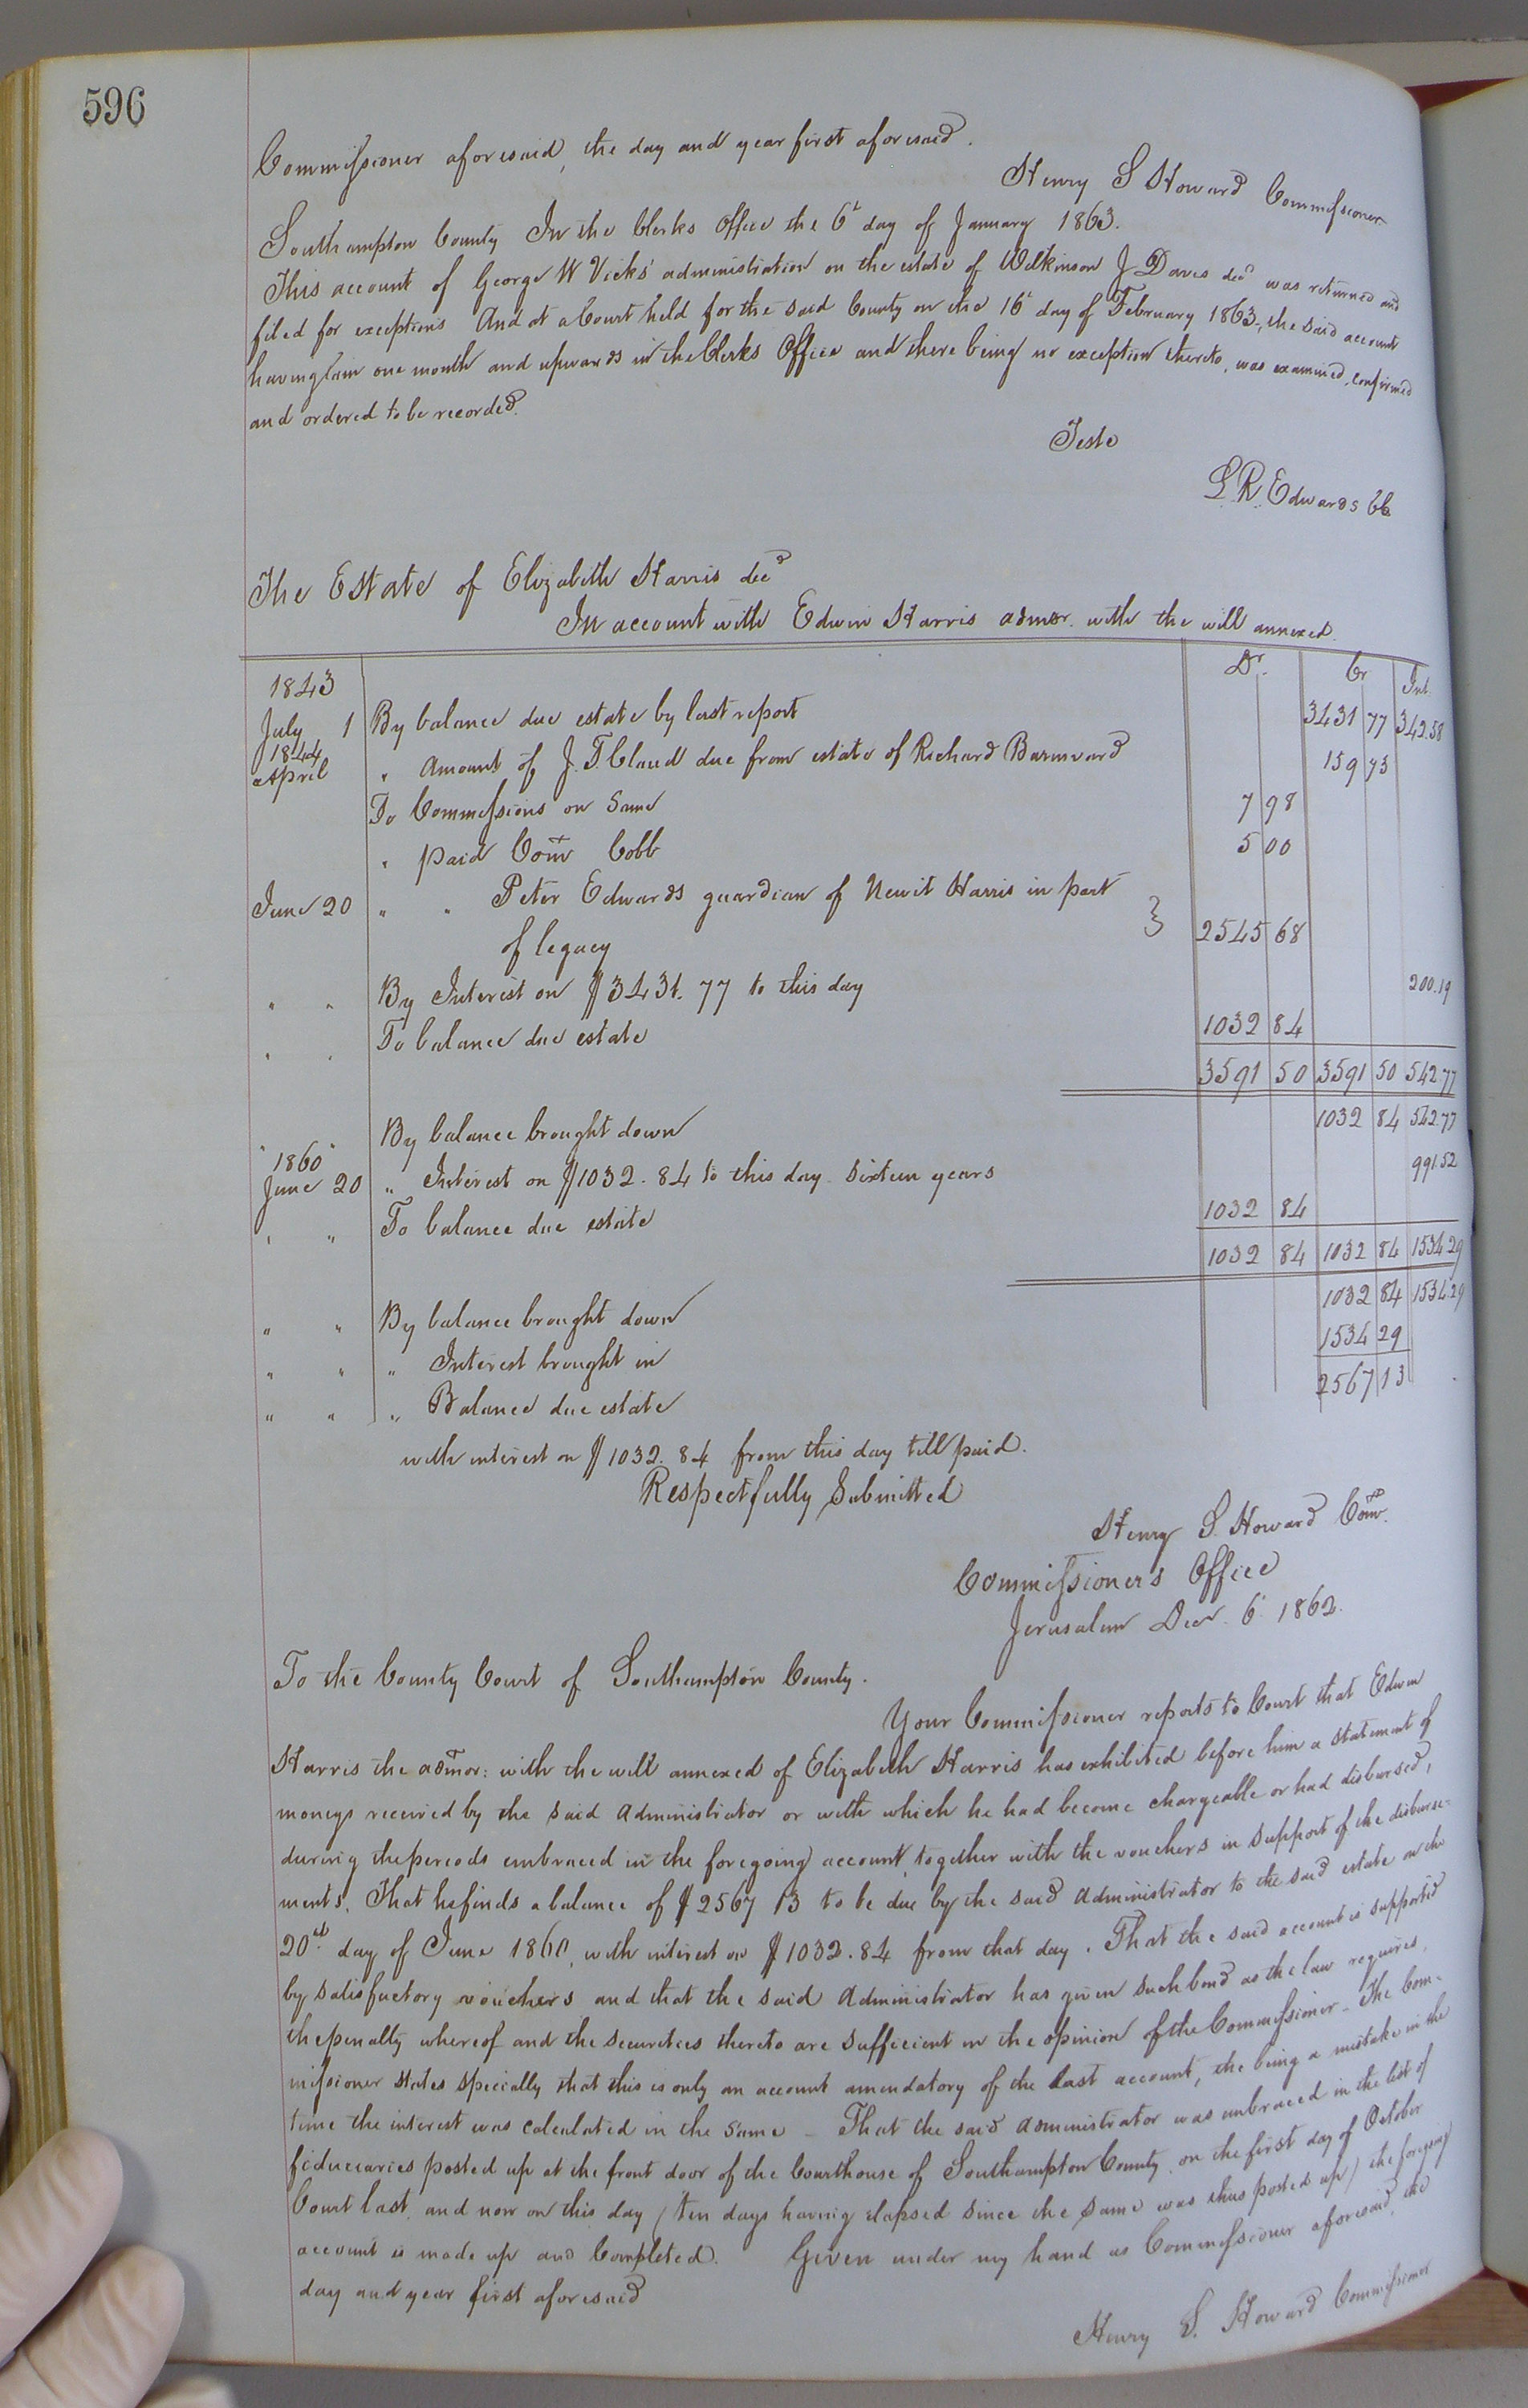 596
Commissioner aforesaid, the day and year first aforesaid.
Henry S Howard Commissioner
Southampton County In the Clerks Office the 6t day of January 1863.
This account of George W Vicks' administration on the estate of Wilkinson J Daves decd was returned and
filed for exceptions And at a Court held for the said County on the 16t day of February 1863, the said account
having lain one month and upwards in the Clerks Office and there being no exception thereto, was examined, confirmed
and ordered to be recorded.
Teste
L. R. Edwards Clk
The Estate of Elizabeth Harris decd
In account with Edwin Harris admor. with the will annexed.
Dr. Cr Int.
1843
July 1 By balance due estate by last report 3431 77 342.58
1844
April " Amount of J. T. Claud due from estate of Richard 159 73
To Commissions on Same 7 98
" paid Comr Cobb 5 00
June 20 " " Peter Edwards guardian of Newit Harris in part
of legacy 2545 68
" " By Interest on $3431.77 to this day 200.19
" " To balance due estate 1032 84
3591 50 3591 50 542.77
By balance brought down 1032 84 542.77
" 1860 "
June 20 " Interest on $1032.84 to this day sixteen years 991.52
" " To balance due estate 1032 84
1032 84 1032 84 1534.29
" " By balance brought down 1032 84 1534.29
" " " Interest brought in 1534 29
" " " Balance due estate 2567 13
with interest on $1032.84 from this day till paid.
Respectfully Submitted
Henry S. Howard Comr.
Commissioner's Office
Jerusalem Decr. 6t 1862.
To the County Court of Southampton County.
Your Commissioner reports to Court that Edwin
Harris the admor: with the will annexed of Elizabeth Harris has exhibited before him a statement of
moneys received by the said Administrator or with which he had become chargeable or had disbursed,
during the periods embraced in the foregoing account, together with the vouchers in support of the disburse-
ments. That he finds a balance of $2567 13 to be due by the said Administrator to the said estate on the
20th day of June 1860, with interest on $1032.84 from that day. That the said account is supported
by satisfactory vouchers and that the said Administrator has given such bond as the law requires,
the penalty whereof and the securities thereto are sufficient in the opinion of the Commissioner - The Com-
missioner states specially that this is only an account amendatory of the last account, the being a mistake in the
time the interest was calculated in the same - That the said Administrator was embraced in the list of
fiduciaries posted up at the front door of the Courthouse of Southampton County, on the first day of October
Court last, and now on this day (ten days having elapsed since the same was thus posted up) the foregoing
account is made up and Completed. Given under my hand as Commissioner aforesaid, the
day and year first aforesaid
Henry S. Howard Commissioner